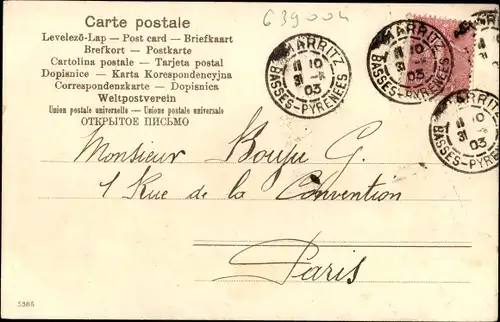 639004
Carte postale
Levelező-Lap — Post card — Briefkaart
Brefkort — Postkarte
Cartolina postale — Tarjeta postal
Dopisnice — Karta Korespondencyjna
Correspondenzkarte — Dopisnica
Weltpostverein
Union postale universelle — Unione postale universale
ОТКРЫТОЕ ПИСЬМО
BIARRITZ
10
31
03
BASSES-PYRENEES
MARRITZ
10
31
03
BASSES-PYRENEES
ARRITZ
10
31
03
BASSES-PYR
Monsieur Bouju G.
1 Rue de la Convention
Paris
5386